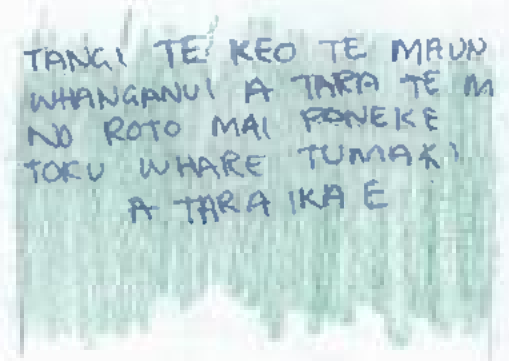 TANGI TE KEO TE MAUN
WHANGANUI A TARA TE M
NO ROTO MAI PONEKE
TOKU WHARE TUMAKI
A TARA IKA E